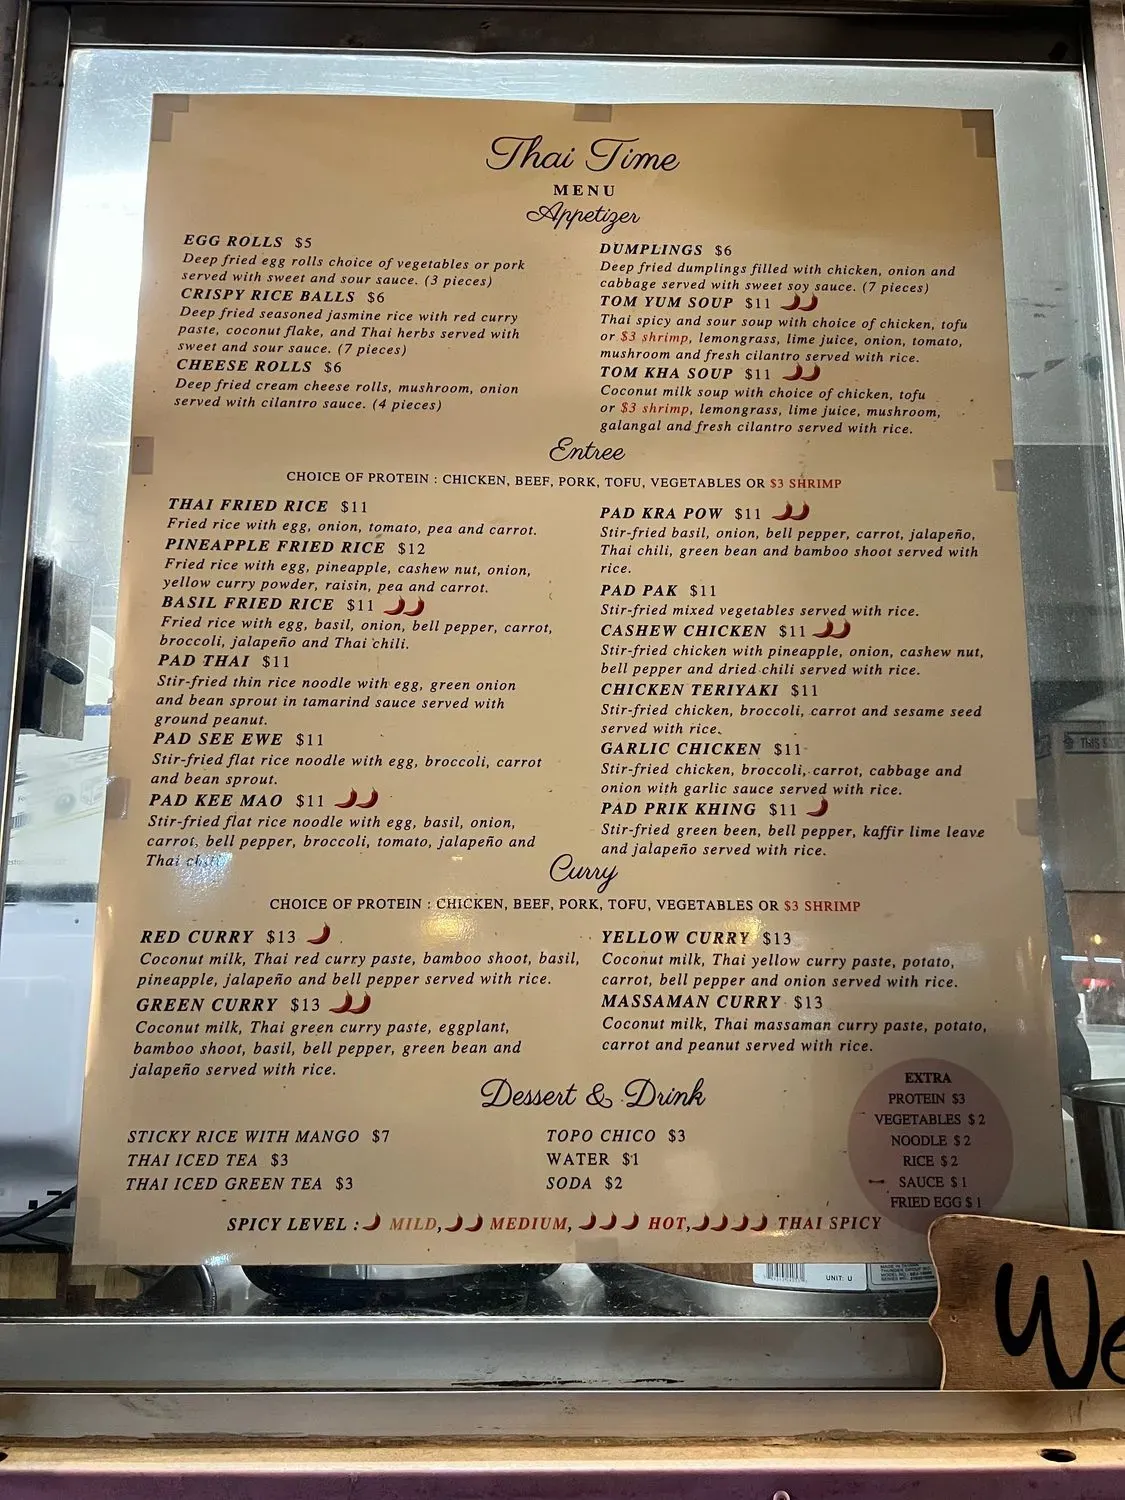 Thai Time
MENU
Appetizer
EGG ROLLS $5
Deep fried egg rolls choice of vegetables or pork
served with sweet and sour sauce. (3 pieces)
CRISPY RICE BALLS $6
Deep fried seasoned jasmine rice with red curry
paste, coconut flake, and Thai herbs served with
sweet and sour sauce. (7 pieces)
CHEESE ROLLS $6
Deep fried cream cheese rolls, mushroom, onion
served with cilantro sauce. (4 pieces)
DUMPLINGS $6
Deep fried dumplings filled with chicken, onion and
cabbage served with sweet soy sauce. (7 pieces)
TOM YUM SOUP $11
Thai spicy and sour soup with choice of chicken, tofu
or $3 shrimp, lemongrass, lime juice, onion, tomato,
mushroom and fresh cilantro served with rice.
TOM KHA SOUP $11
Coconut milk soup with choice of chicken, tofu
or $3 shrimp, lemongrass, lime juice, mushroom,
galangal and fresh cilantro served with rice.
Entree
CHOICE OF PROTEIN : CHICKEN, BEEF, PORK, TOFU, VEGETABLES OR $3 SHRIMP
THAI FRIED RICE $11
Fried rice with egg, onion, tomato, pea and carrot.
PINEAPPLE FRIED RICE $12
Fried rice with egg, pineapple, cashew nut, onion,
yellow curry powder, raisin, pea and carrot.
BASIL FRIED RICE $11
Fried rice with egg, basil, onion, bell pepper, carrot,
broccoli, jalapeño and Thai chili.
PAD THAI $11
Stir-fried thin rice noodle with egg, green onion
and bean sprout in tamarind sauce served with
ground peanut.
PAD SEE EWE $11
Stir-fried flat rice noodle with egg, broccoli, carrot
and bean sprout.
PAD KEE MAO $11
Stir-fried flat rice noodle with egg, basil, onion,
carrot, bell pepper, broccoli, tomato, jalapeño and
Thai
PAD KRA POW $11
Stir-fried basil, onion, bell pepper, carrot, jalapeño,
Thai chili, green bean and bamboo shoot served with
rice.
PAD PAK $11
Stir-fried mixed vegetables served with rice.
CASHEW CHICKEN $11
Stir-fried chicken with pineapple, onion, cashew nut,
bell pepper and dried chili served with rice.
CHICKEN TERIYAKI $11
Stir-fried chicken, broccoli, carrot and sesame seed
served with rice.
GARLIC CHICKEN $11
Stir-fried chicken, broccoli, carrot, cabbage and
onion with garlic sauce served with rice.
PAD PRIK KHING $11
Stir-fried green been, bell pepper, kaffir lime leave
and jalapeño served with rice.
Curry
CHOICE OF PROTEIN : CHICKEN, BEEF, PORK, TOFU, VEGETABLES OR $3 SHRIMP
RED CURRY $13
Coconut milk, Thai red curry paste, bamboo shoot, basil,
pineapple, jalapeño and bell pepper served with rice.
GREEN CURRY $13
Coconut milk, Thai green curry paste, eggplant,
bamboo shoot, basil, bell pepper, green bean and
jalapeño served with rice.
YELLOW CURRY $13
Coconut milk, Thai yellow curry paste, potato,
carrot, bell pepper and onion served with rice.
MASSAMAN CURRY $13
Coconut milk, Thai massaman curry paste, potato,
carrot and peanut served with rice.
Dessert & Drink
STICKY RICE WITH MANGO $7
THAI ICED TEA $3
THAI ICED GREEN TEA $3
TOPO CHICO $3
WATER $1
SODA $2
EXTRA
PROTEIN $3
VEGETABLES $2
NOODLE $2
RICE $2
SAUCE $1
FRIED EGG $1
SPICY LEVEL : MILD, MEDIUM, HOT, THAI SPICY
THIS SIDE
UNIT: U
We